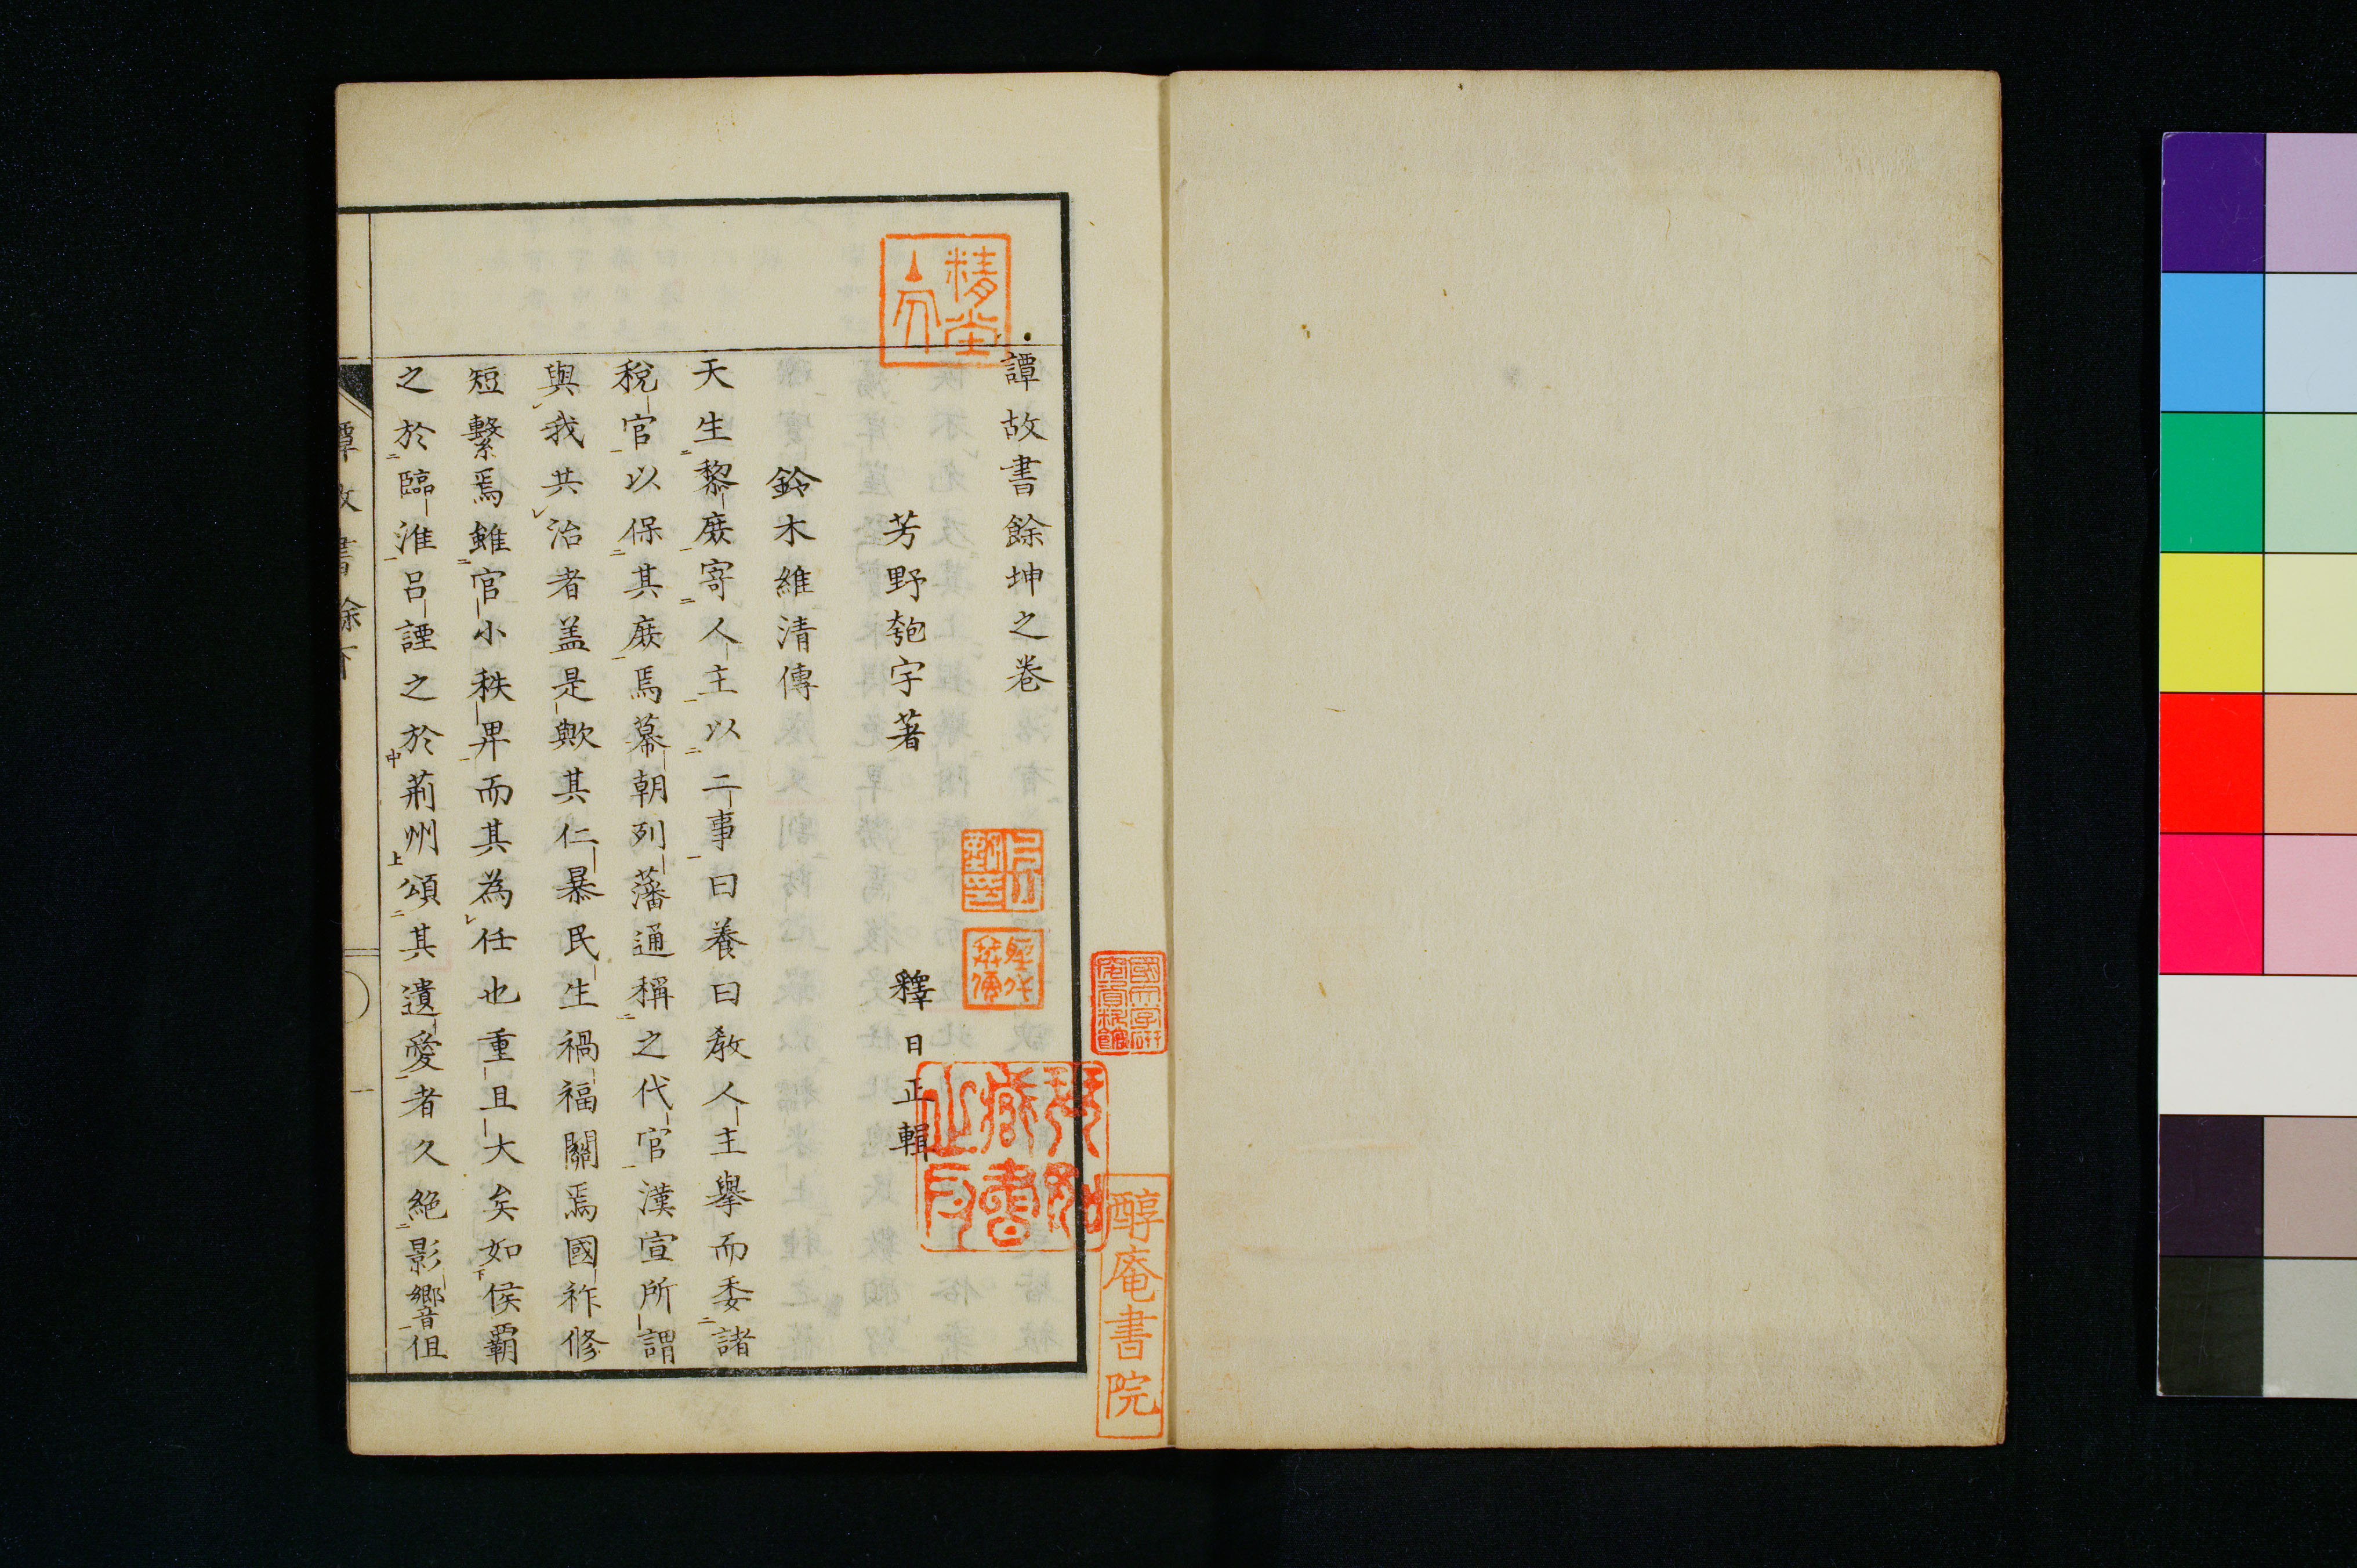 譚故書餘坤之卷
芳野匏宇著
釋日正輯
鈴木維清傳
天生黎庶寄人主以二事曰養曰教人主舉而委諸
稅官以保其庶焉幕朝列藩通稱之代官漢宣所謂
與我共治者盖是歟其仁暴民生禍福關焉國祚修
短繫焉雖官小秩畀而其為任也重且大矣如侯霸
之於臨淮呂諲之於荊州頌其遺愛者久絕影響但
精堂
醇庵書院